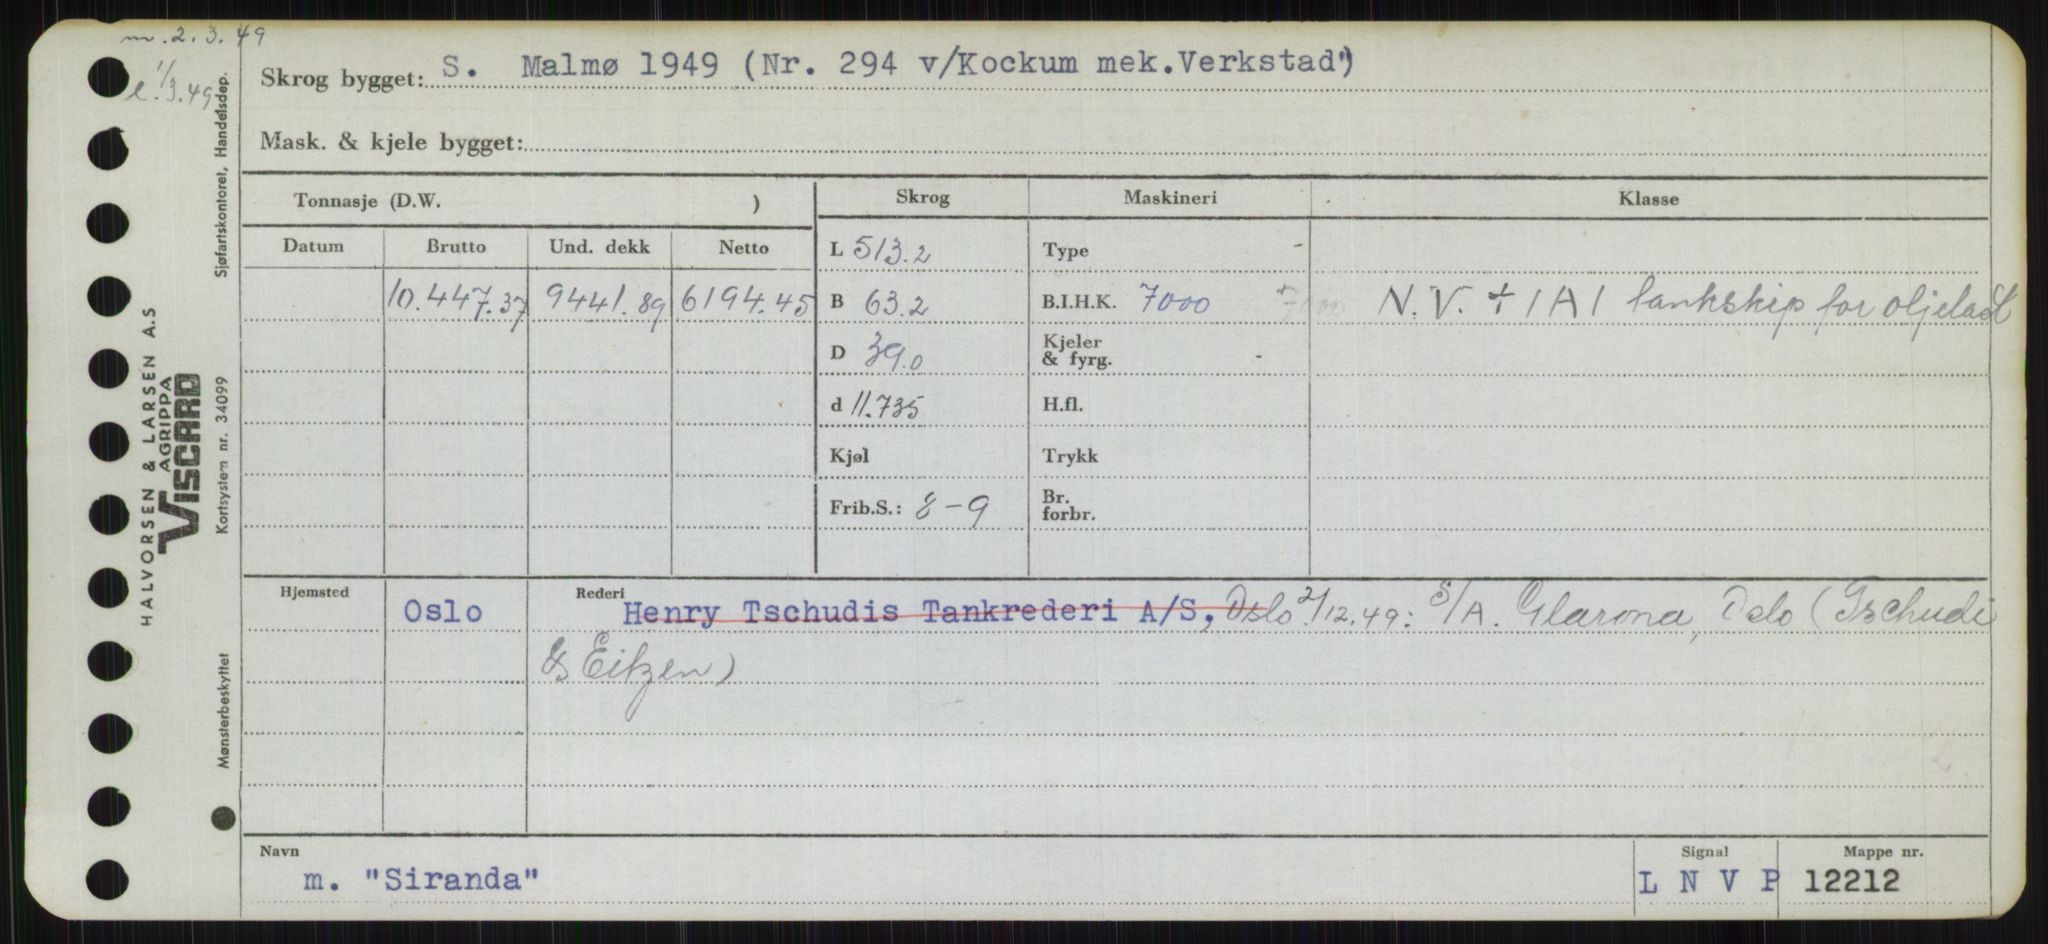 m. 2. 3. 49
e. 1/3.49
Skrog bygget: S. Malmø 1949 (Nr. 294 v/Kockum mek.Verkstad")
Mask. & kjele bygget:
Tonnasje (D.W. )
Skrog
Maskineri
Klasse
Datum
Brutto
Und. dekk
Netto
L 513.2
Type -
10.447.37
9441.89
6194.45
B 63.2
B.I.H.K. 7000 7000
N. V. + 1A1 tankskip for oljelast
D 39.0
Kjeler
& fyrg. -
d 11.735
H.fl.
Kjøl
Trykk
Frib.S.: 8-9
Br.
forbr.
Hjemsted
Oslo
Rederi
Henry Tschudis Tankrederi A/S, Oslo 2/12.49: S/A. Glarona, Oslo (Tschudi
& Eitzen)
Navn
m. "Siranda"
Signal
L N V P
Mappe nr.
12212
HALVORSEN & LARSEN A.S
AGRIPPA
VISCARD
Mønsterbeskyttet Kortsystem nr. 34099 Sjøfartskontoret, Handelsdep.